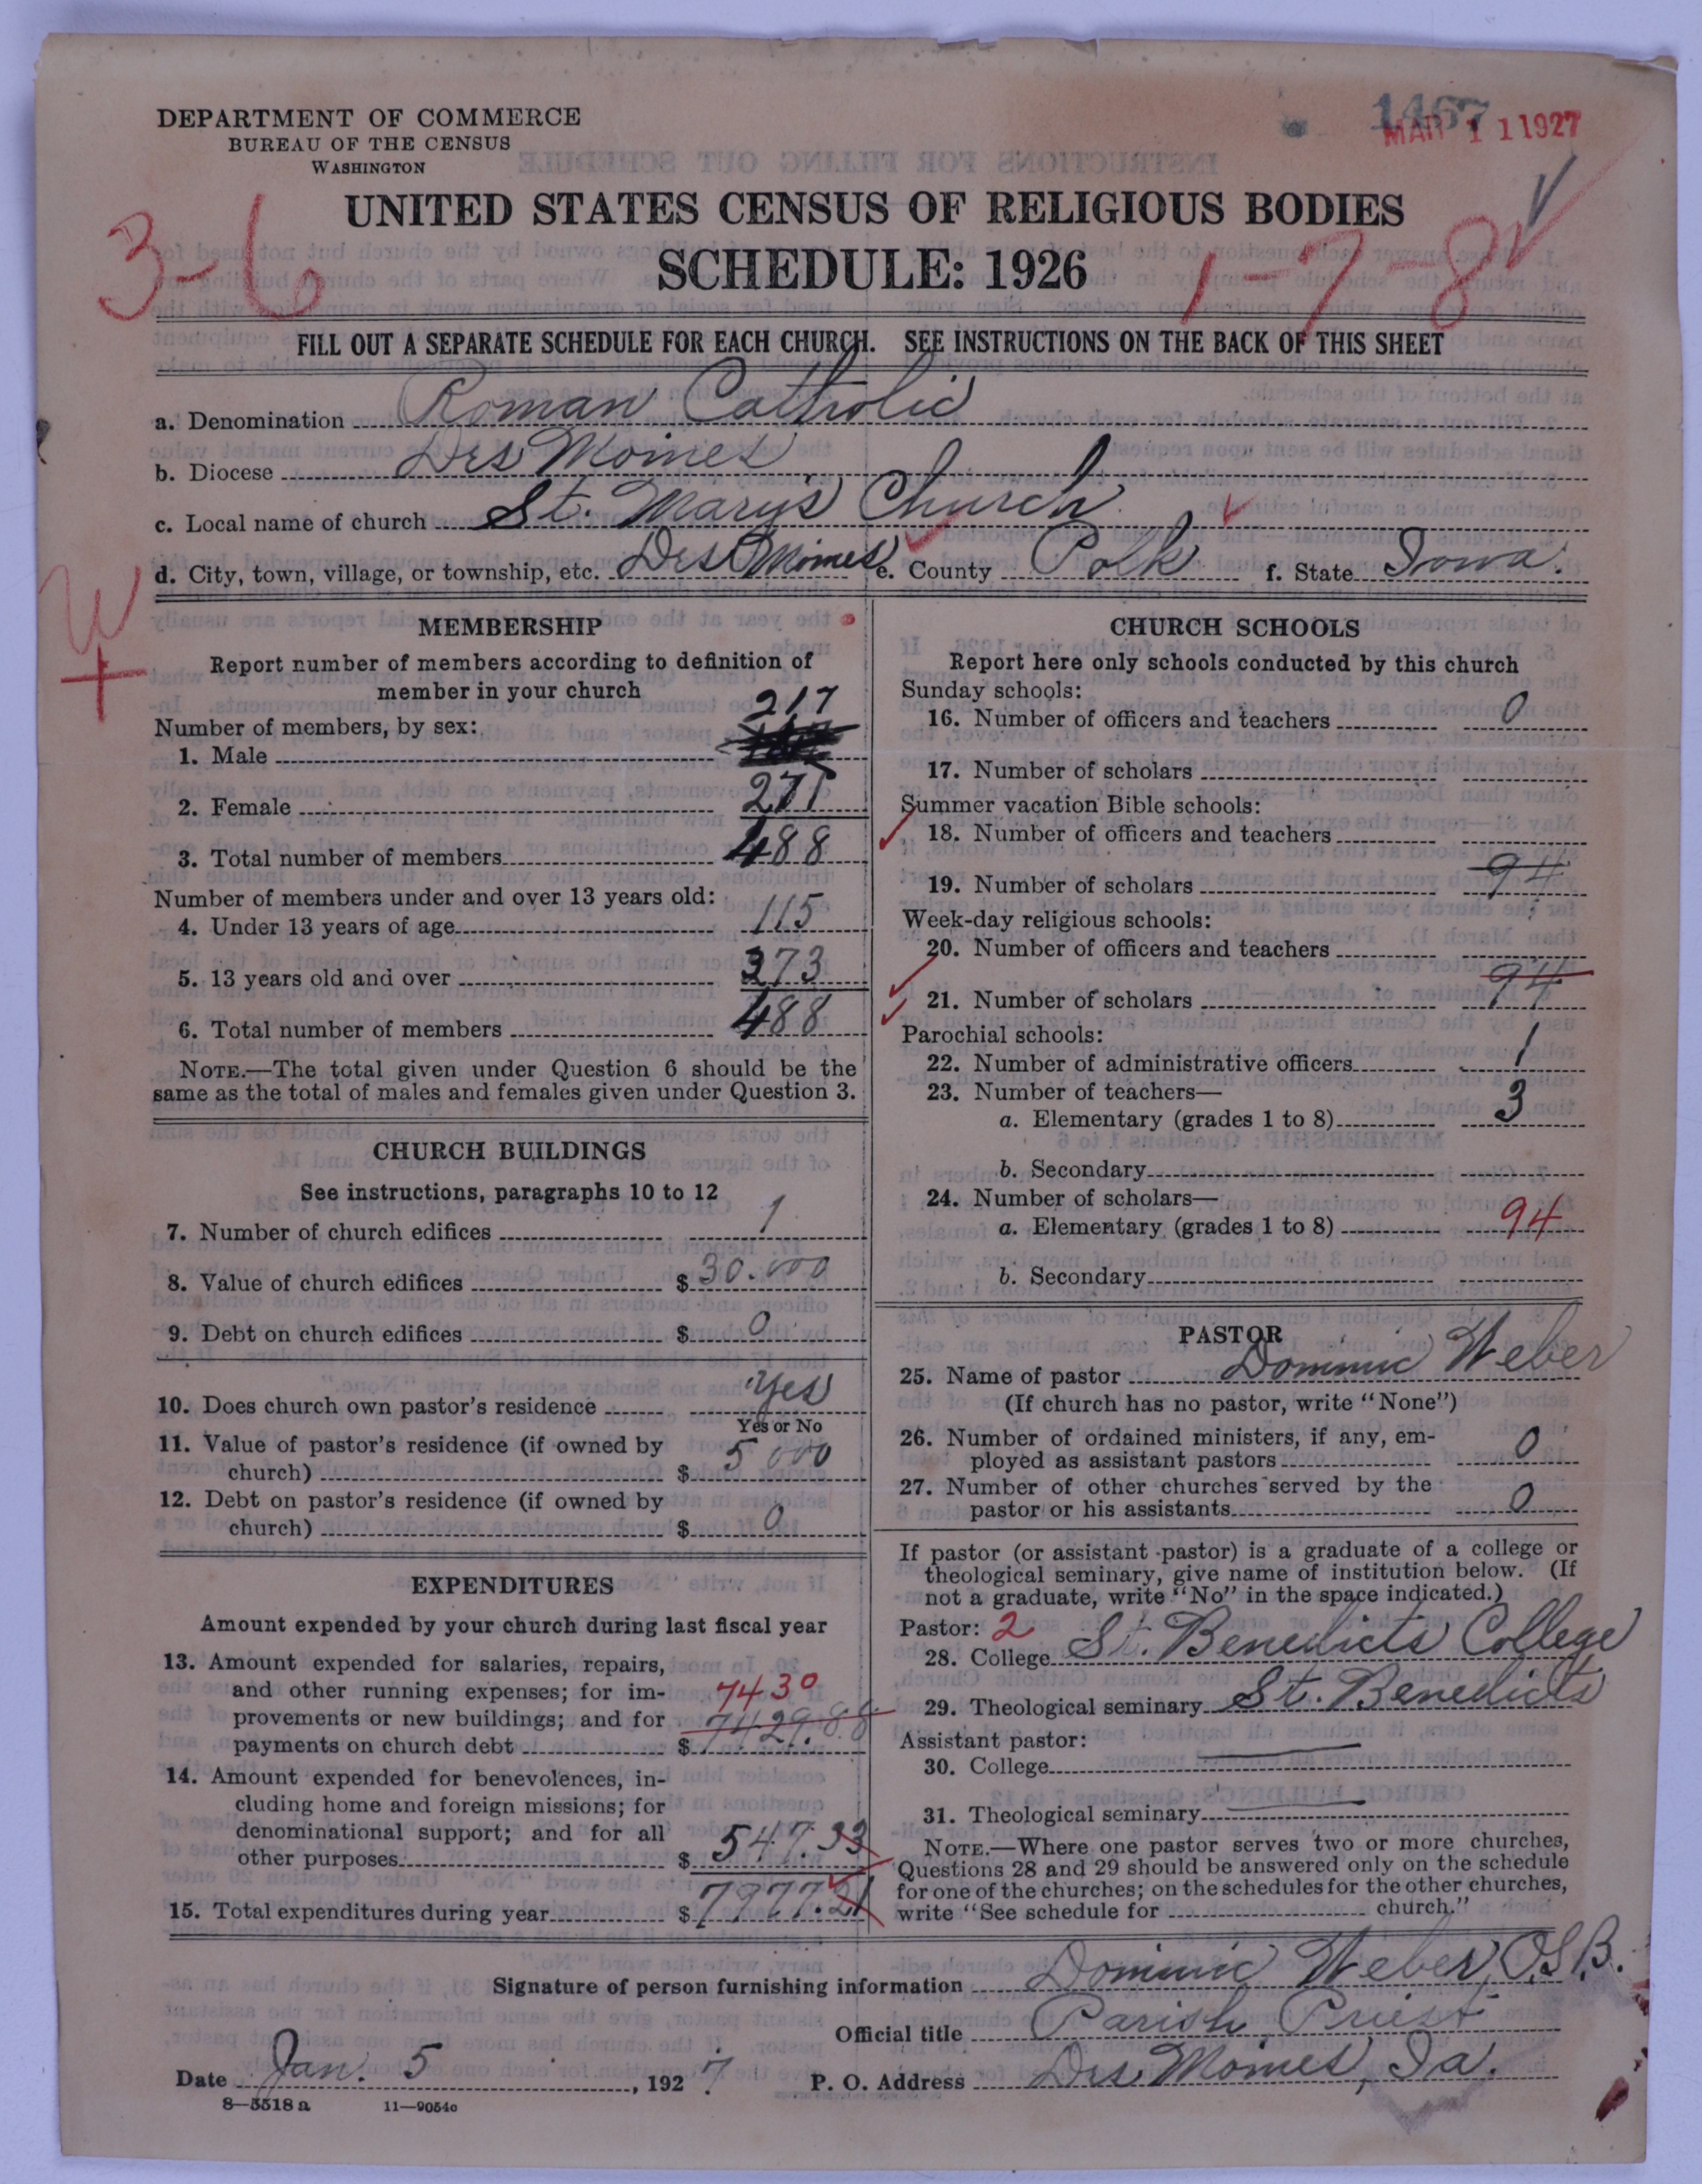 DEPARTMENT OF COMMERCE
BUREAU OF THE CENSUS
WASHINGTON
1467
MAR 11 1927
UNITED STATES CENSUS OF RELIGIOUS BODIES
SCHEDULE: 1926
3-6
1-7-8
FILL OUT A SEPARATE SCHEDULE FOR EACH CHURCH. SEE INSTRUCTIONS ON THE BACK OF THIS SHEET
a. Denomination Roman Catholic
b. Diocese Des Moines
c. Local name of church St. Mary's Church
d. City, town, village, or township, etc. Des Moines e. County Polk f. State Iowa.
MEMBERSHIP
Report number of members according to definition of
member in your church
Number of members, by sex:
1. Male 217
2. Female 271
3. Total number of members 488
Number of members under and over 13 years old:
4. Under 13 years of age 115
5. 13 years old and over 373
6. Total number of members 488
NOTE.—The total given under Question 6 should be the
same as the total of males and females given under Question 3.
CHURCH BUILDINGS
See instructions, paragraphs 10 to 12
7. Number of church edifices 1
8. Value of church edifices $ 30.000
9. Debt on church edifices $ 0
10. Does church own pastor's residence Yes
Yes or No
11. Value of pastor's residence (if owned by
church) $ 5000
12. Debt on pastor's residence (if owned by
church) $ 0
EXPENDITURES
Amount expended by your church during last fiscal year
13. Amount expended for salaries, repairs,
and other running expenses; for im-
7430
provements or new buildings; and for
payments on church debt $ 7429.88
14. Amount expended for benevolences, in-
cluding home and foreign missions; for
denominational support; and for all
other purposes $ 547.33
15. Total expenditures during year $ 7977.21
CHURCH SCHOOLS
Report here only schools conducted by this church
Sunday schools:
16. Number of officers and teachers 0
17. Number of scholars
Summer vacation Bible schools:
18. Number of officers and teachers
19. Number of scholars 94
Week-day religious schools:
20. Number of officers and teachers
21. Number of scholars 94
Parochial schools:
22. Number of administrative officers 1
23. Number of teachers—
a. Elementary (grades 1 to 8) 3
b. Secondary
24. Number of scholars—
a. Elementary (grades 1 to 8) 94
b. Secondary
PASTOR
25. Name of pastor Dominic Weber
(If church has no pastor, write "None")
26. Number of ordained ministers, if any, em-
ployed as assistant pastors 0
27. Number of other churches served by the
pastor or his assistants 0
If pastor (or assistant pastor) is a graduate of a college or
theological seminary, give name of institution below. (If
not a graduate, write "No" in the space indicated.)
Pastor: 2
28. College St. Benedicts College
29. Theological seminary St. Benedicts
Assistant pastor:
30. College
31. Theological seminary
NOTE.—Where one pastor serves two or more churches,
Questions 28 and 29 should be answered only on the schedule
for one of the churches; on the schedules for the other churches,
write "See schedule for church."
Signature of person furnishing information Dominic Weber, O.S.B.
Official title Parish Priest
Date Jan. 5, 1927 P. O. Address Des Moines, Ia.
8—5518 a 11—9054c